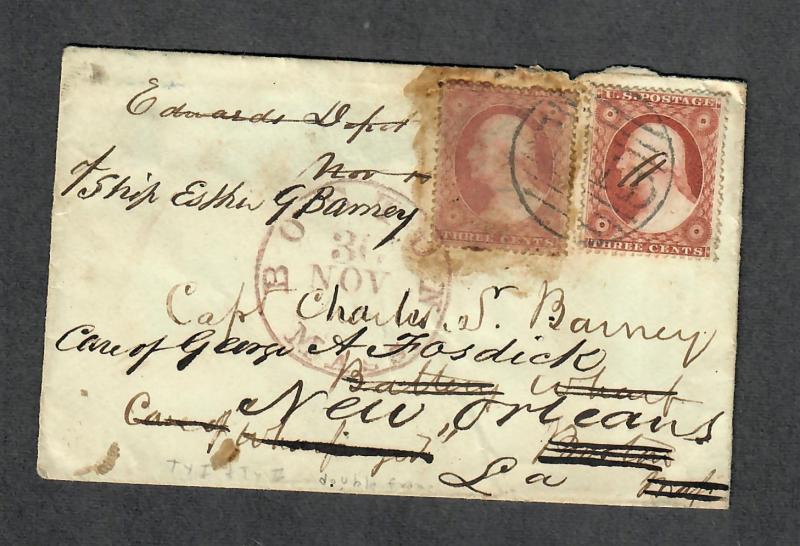 Edwards Depot
Nov
U.S. POSTAGE
THREE CENTS
THREE CENTS
of Ship Esther G Barney
BOSTON
30
NOV
MASS
Capt Charles S. Barney
Care of George A Fosdick
Battery Wharf
New Orleans
Care of Wharfinger
Boston
La
Ty I & Ty II double